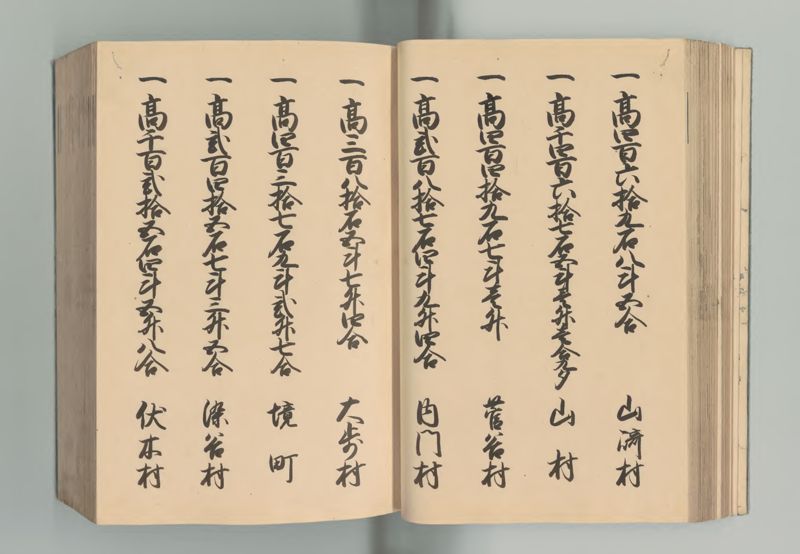 一 高四百六拾九石八斗五合 山﨑村
一 高千四百六拾七石五斗壱升壱合九夕 山村
一 高四百四拾九石七斗壱升 菅谷村
一 高弐百八拾七石四斗九升四合 内門村
一 高三百八拾石五斗七升四合 大歩村
一 高四百三拾七石九斗弐升七合 境町
一 高弐百四拾五石七斗三升五合 染谷村
一 高千百弐拾五石四斗五升八合 伏木村